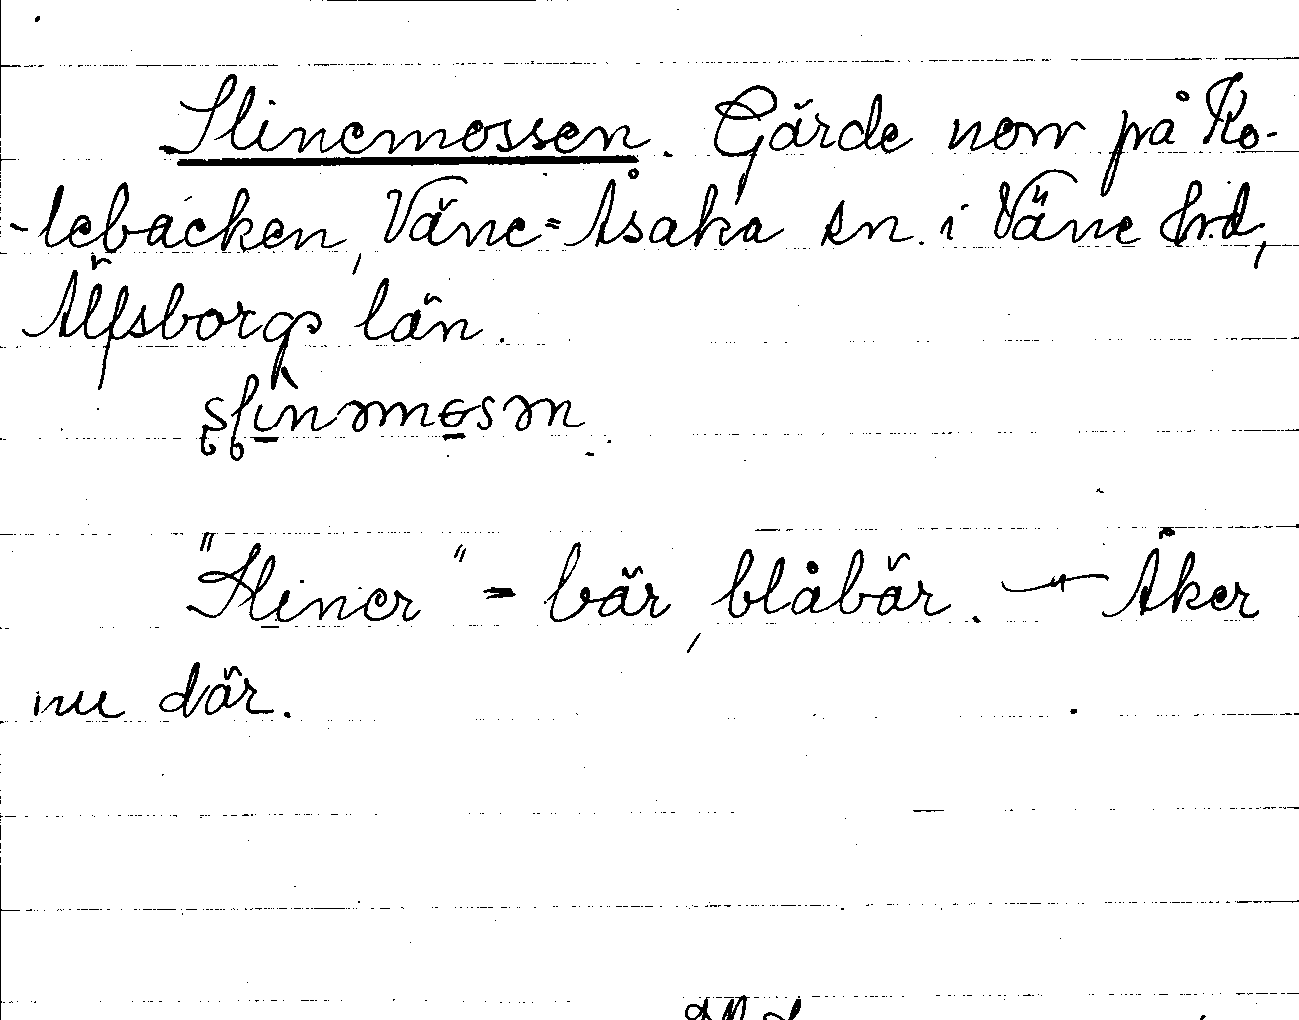 Slinemossen. Gärde norr på Ko-
-lebacken, Väne-Åsaka sn. i Väne hrd,
Älfsborgs län.
"Sliner" = bär, blåbär. — Åker
nu där.